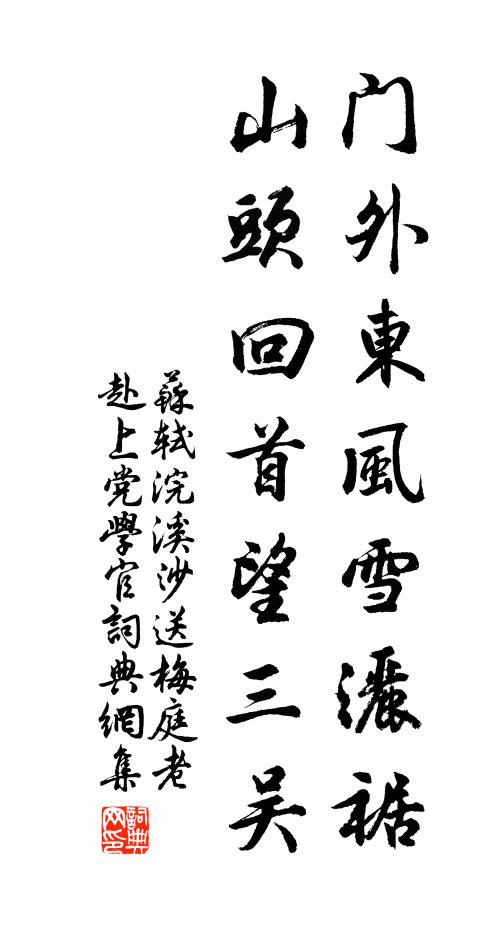 门外東風雪灑裾
山頭回首望三吴
蘇軾浣溪沙送梅庭老
赴上党學官詞典網集
詞典
网印